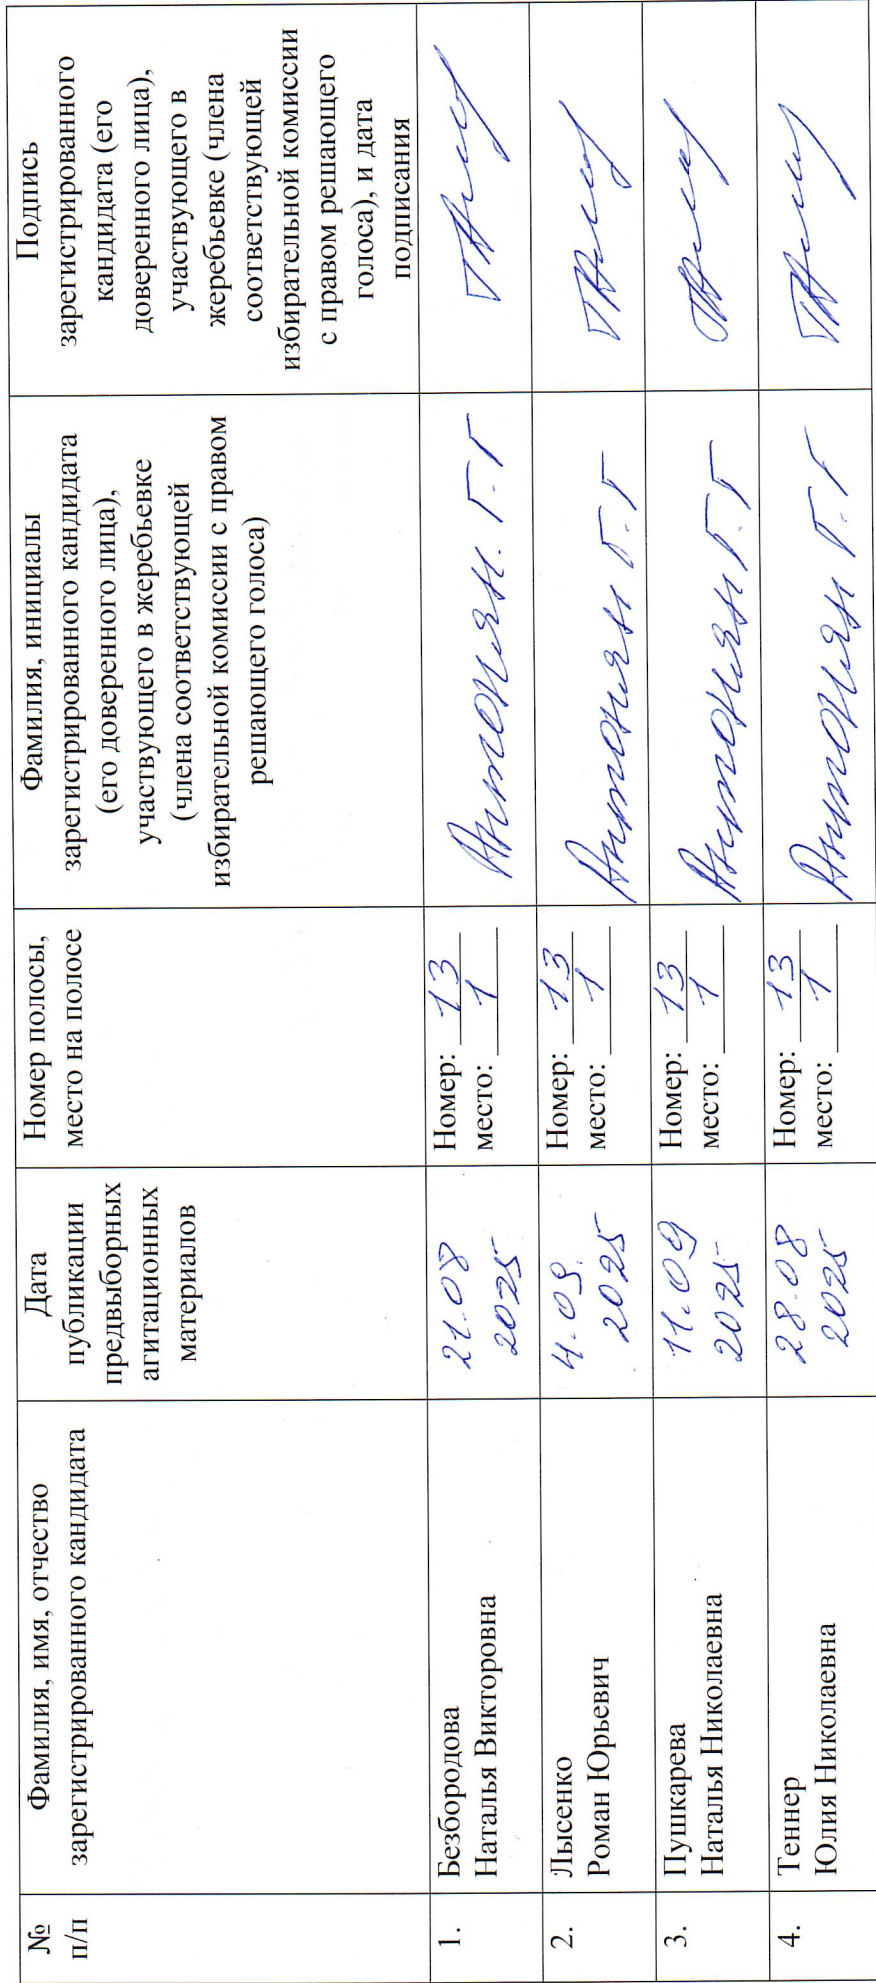 №
п/п
Фамилия, имя, отчество
зарегистрированного кандидата
Дата
публикации
предвыборных
агитационных
материалов
Номер полосы,
место на полосе
Фамилия, инициалы
зарегистрированного кандидата
(его доверенного лица),
участвующего в жеребьевке
(члена соответствующей
избирательной комиссии с правом
решающего голоса)
Подпись
зарегистрированного
кандидата (его
доверенного лица),
участвующего в
жеребьевке (члена
соответствующей
избирательной комиссии
с правом решающего
голоса), и дата
подписания
1.
Безбородова
Наталья Викторовна
21.08
2025
Номер: 13
место: 1
Антонян. Г.Г
2.
Лысенко
Роман Юрьевич
4.09.
2025
Номер: 13
место: 1
Антонян Г.Г
3.
Пушкарева
Наталья Николаевна
11.09
2025
Номер: 13
место: 1
Антонян Г.Г
4.
Теннер
Юлия Николаевна
28.08
2025
Номер: 13
место: 1
Антонян Г.Г